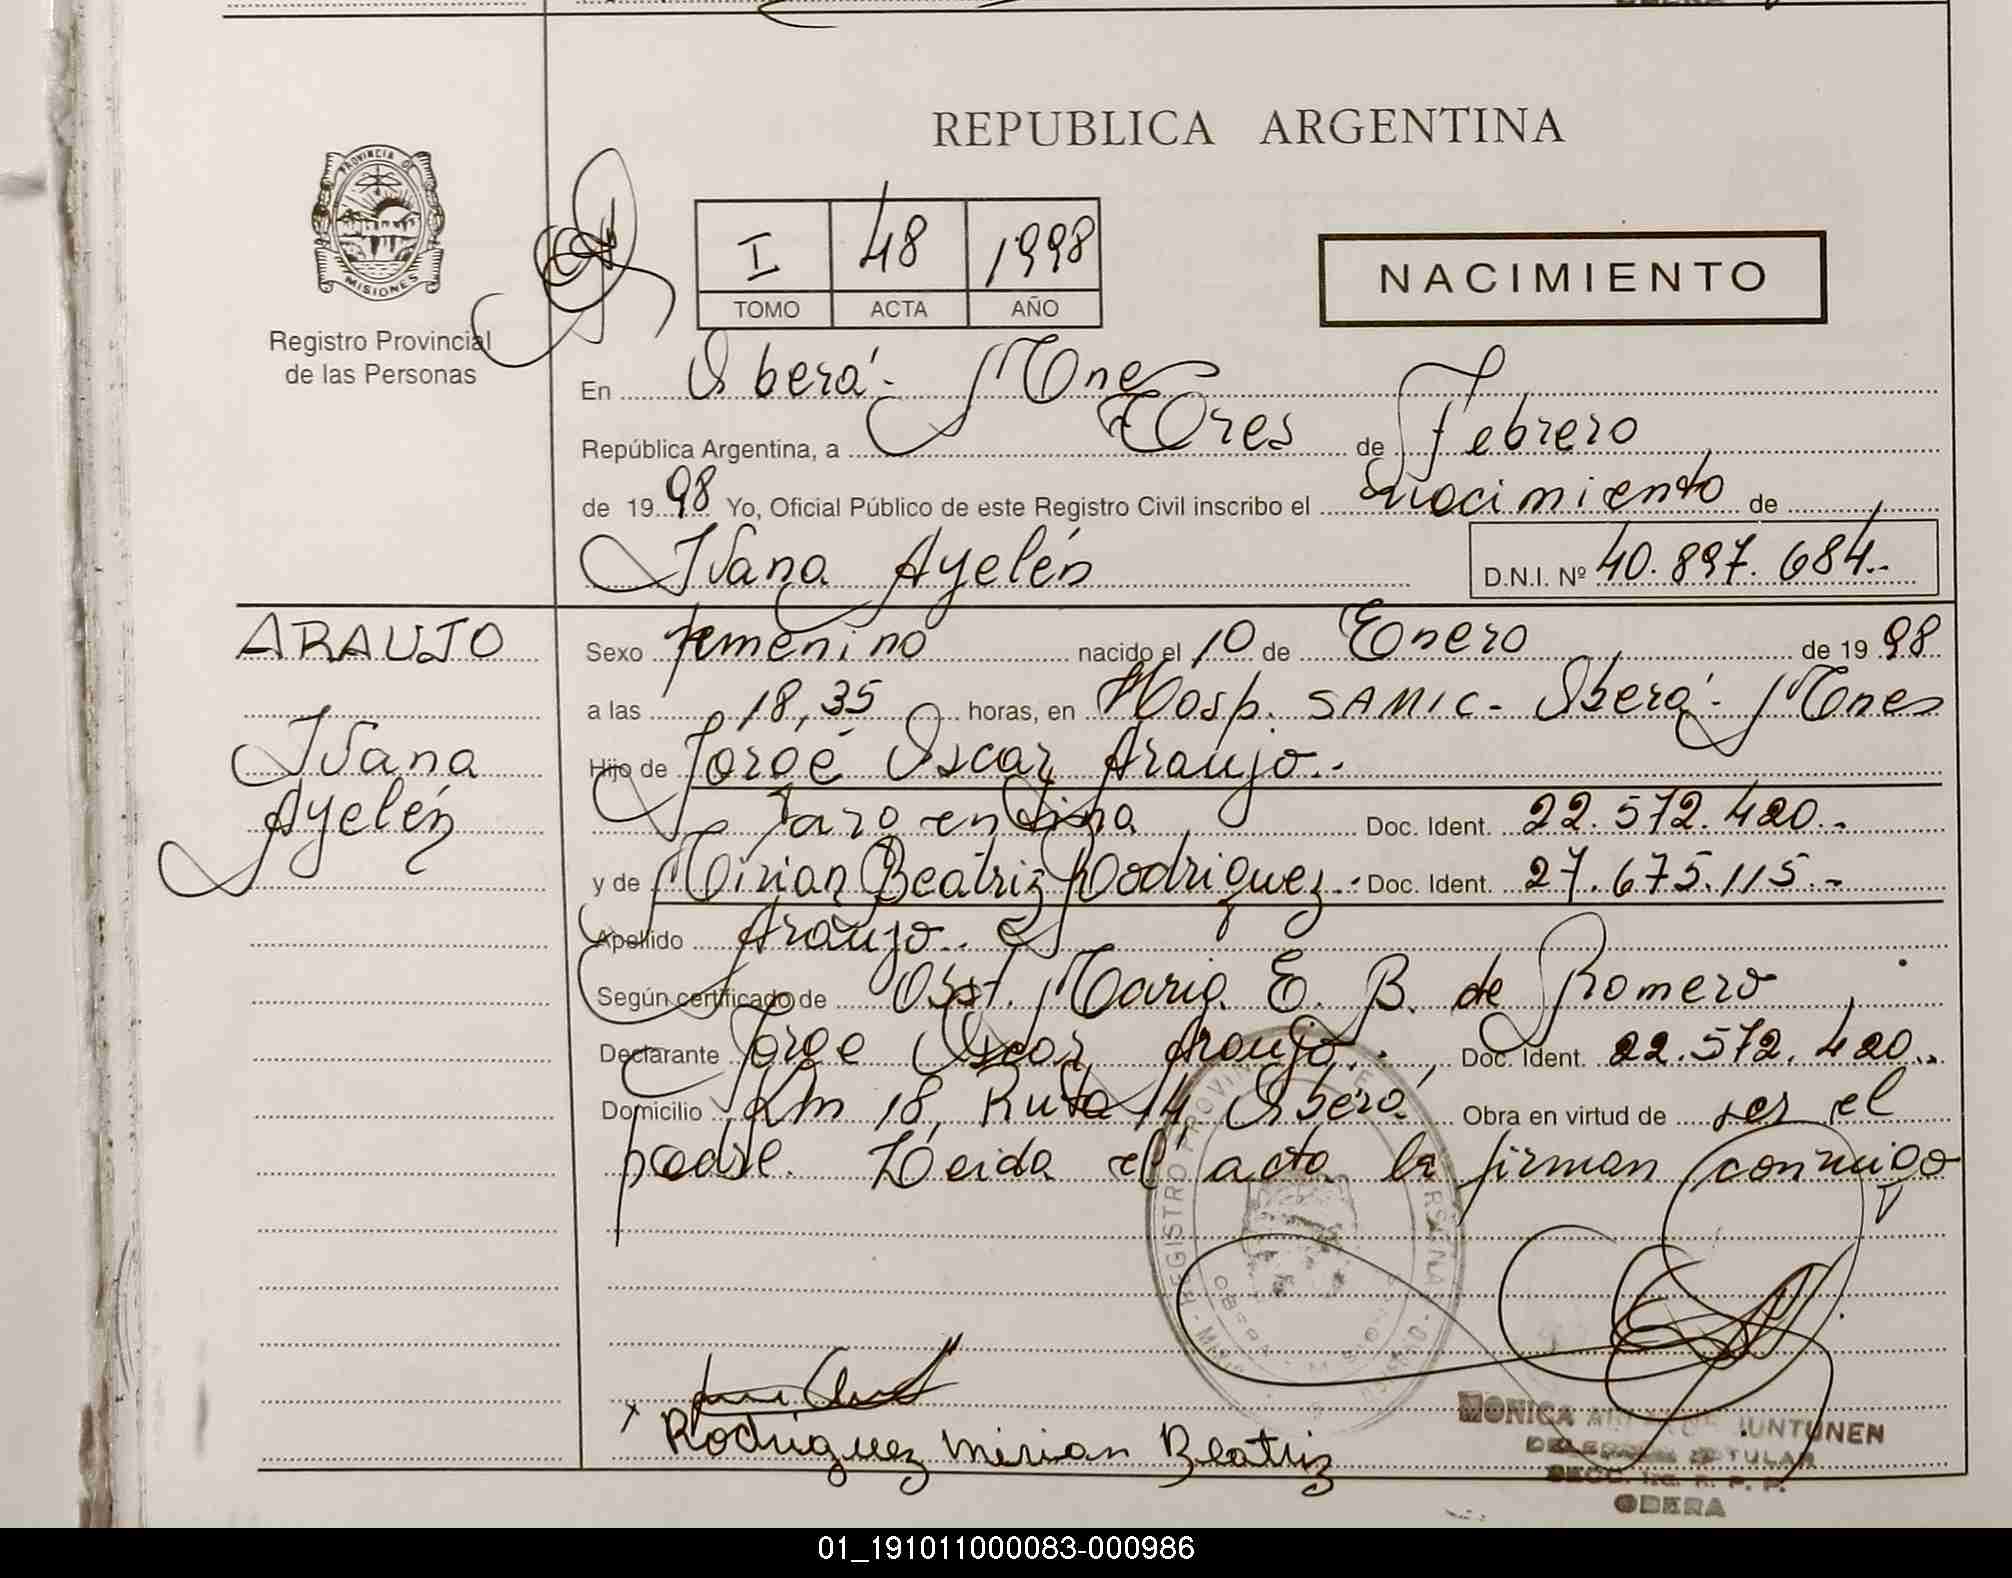 REPUBLICA ARGENTINA
PROVINCIA DE
MISIONES
Registro Provincial
de las Personas
I 48 1998
TOMO ACTA AÑO
NACIMIENTO
En Oberá - Mnes
República Argentina, a Tres de Febrero
de 1998 Yo, Oficial Público de este Registro Civil inscribo el nacimiento de
Ivana Ayelén D.N.I. Nº 40.897.684.-
ARAUJO
Ivana
Ayelén
Sexo femenino nacido el 10 de Enero de 1998
a las 18,35 horas, en Hosp. SAMIC - Oberá - Mnes
Hijo de Jorge Oscar Araujo.-
Argentina Doc. Ident. 22.572.420.-
y de Mirian Beatriz Rodriguez.- Doc. Ident. 27.675.115.-
Apellido Araujo.
Según certificado de Obst. Maria E. B. de Romero
Declarante Jorge Oscar Araujo.- Doc. Ident. 22.572.420.-
Domicilio Km 18, Ruta 14, Oberá Obra en virtud de ser el
padre. Leida el acta la firman conmigo
REGISTRO PROVINCIAL DE
x Rodriguez Mirian Beatriz
MONICA JUNTUNEN
TITULAR
R. P. P.
OBERA
01_191011000083-000986